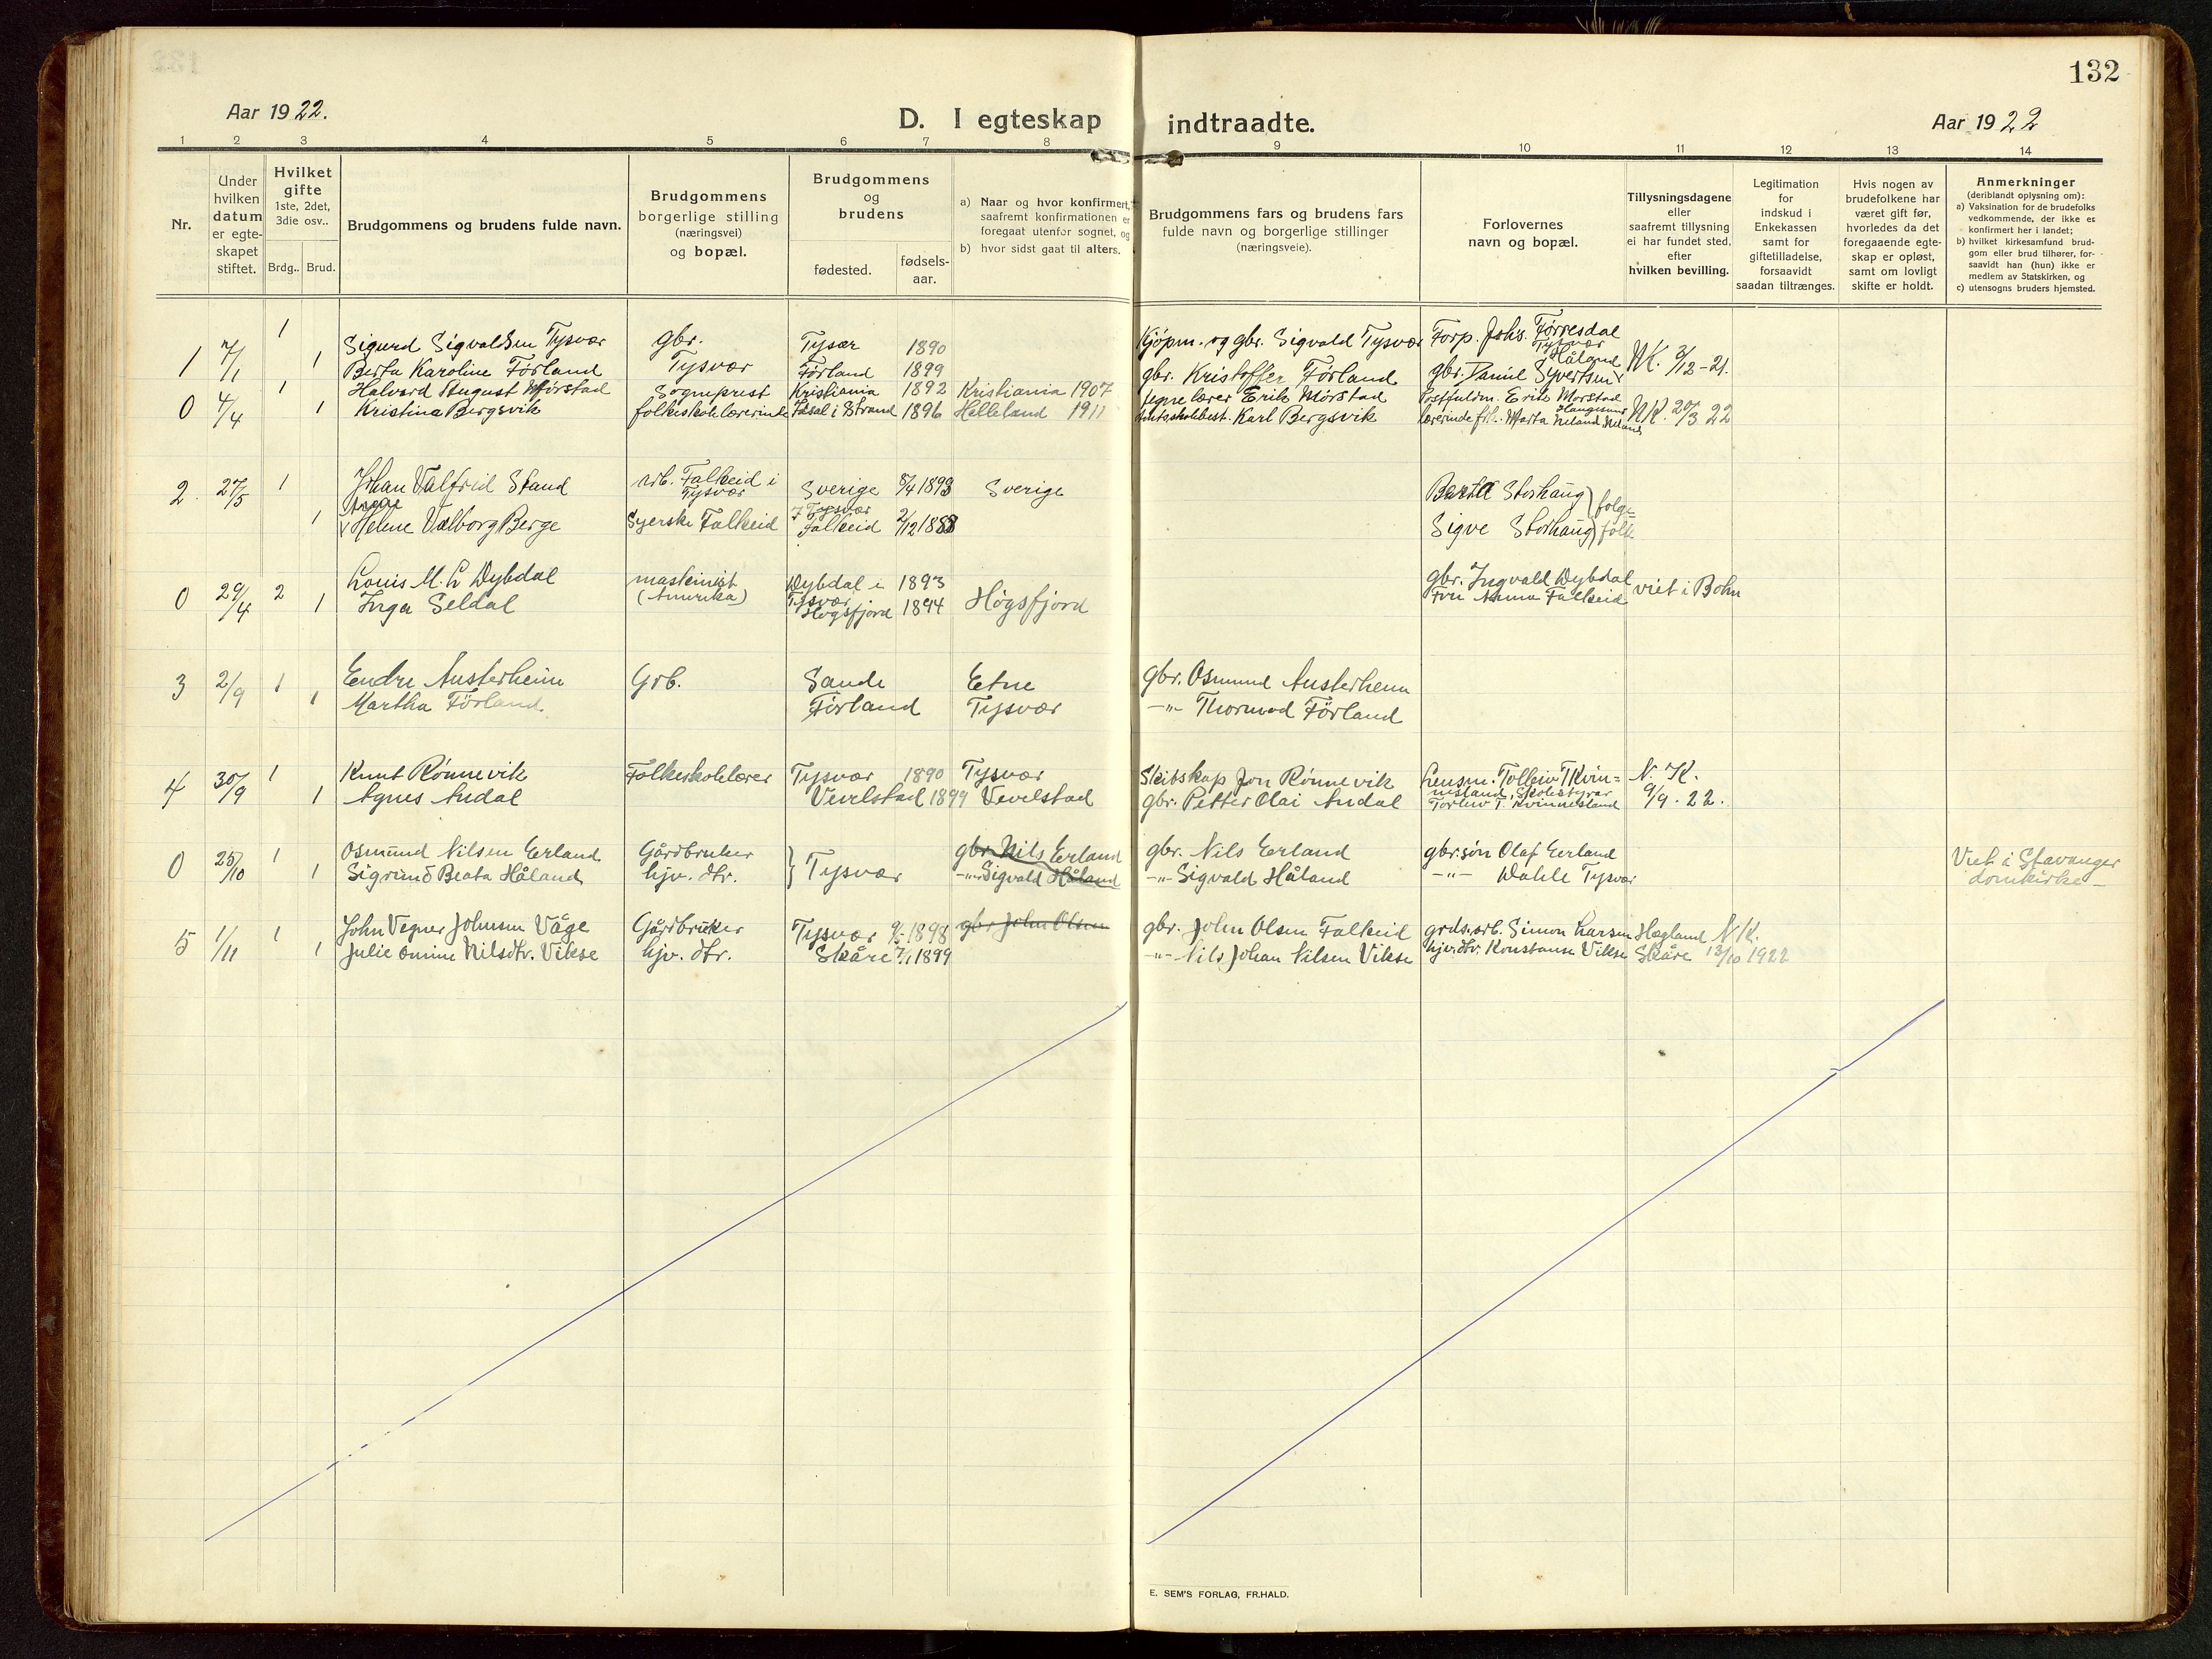 132
Aar 1922.
D. I egteskap indtraadte.
Aar 1922
1 2 3 4 5 6 7 8 9 10 11 12 13 14
Nr.
Under hvilken datum er egte- skapet stiftet.
Hvilket gifte 1ste, 2det, 3die osv..
Brdg.. Brud.
Brudgommens og brudens fulde navn.
Brudgommens borgerlige stilling (næringsvei) og bopæl.
Brudgommens og brudens
fødested. fødsels- aar.
a) Naar og hvor konfirmert, saafremt konfirmationen er foregaat utenfor sognet, og
b) hvor sidst gaat til alters.
Brudgommens fars og brudens fars fulde navn og borgerlige stillinger (næringsveie).
Forlovernes navn og bopæl.
Tillysningsdagene eller saafremt tillysning ei har fundet sted, efter hvilken bevilling.
Legitimation for indskud i Enkekassen samt for giftetilladelse, forsaavidt saadan tiltrænges.
Hvis nogen av brudefolkene har været gift før, hvorledes da det foregaaende egte- skap er opløst, samt om lovligt skifte er holdt.
Anmerkninger (deriblandt oplysning om):
a) Vaksination for de brudefolks vedkommende, der ikke er konfirmert her i landet;
b) hvilket kirkesamfund brud- gom eller brud tilhører, for- saavidt han (hun) ikke er medlem av Statskirken, og
c) utensogns bruders hjemsted.
1 7/1 1 Sigurd Sigvaldsen Tysvær gbr. Tysær 1890 Kjøpm. og gbr. Sigvald Tysvær Forp. Johs. Førresdal Tysvær
1 Berta Karoline Förland Tysvær Förland 1899 gbr. Kristoffer Förland gbr. Daniel Syvertsen Håland NK. 3/12-21.
0 4/4 1 Halvard August Mørstad Sogneprest Kristiania 1892 Kristiania 1907 lærer Erik Mörstad Postfuldm. Erik Morstad Haugesund
1 Kristina Bergsvik folkeskolelærerinde Idsal i Strand 1896 Helleland 1911 Karl Bergsvik lærerinde Marta Neland NK. 20/3 22
2. 27/5 1 Johan Valfrid Stand arb. Falkeid i Tysvær Sverige 8/4 1893 Sverige Berta Storhaug
1 Helene Valborg Berge Syerske Falkeid Tysvær Falkeid 2/12 1888 Sigve Storhaug folge- folk
0 29/4 2 Louis M. L Dybdal maskinist Dybdal i Tysvær 1893 gbr. Ingvald Dybdal
1 Inga Seldal (Amerika) Høgsfjord 1894 Högsfjord Anna Falkeid viet i Bokn
3 2/9 1 Endre Austerheim Grb. Sande Etne gbr. Osmund Austerheim
1 Martha Förland Förland Tysvær -"- Thormod Förland
4 30/9 1 Knut Rönnevik Folkeskolelærer Tysvær 1890 Tysvær Skibskap Jon Rönnevik Lensm. Tollew T Kvin=
1 Agnes Andal Vevelstad 1899 Vevelstad gbr. Petter Olai Andal nesland, Skolestyrar Torlew T. Kvinnesland N.K. 9/9. 22.
0 25/10 1 Osmund Nilsen Eerland Gårdbruker gbr. Nils Eerland gbr. Nils Eerland gbr.søn Olaf Eerland
1 Sigrund Beata Håland hjv. dtr. } Tysvær -"- Sigvald Håland -"- Sigvald Håland -"- Wahle Tysvær Viet i Stavanger domkirke -
5 1/11 1 John Vegner Johnsen Våge Gårdbruker Tysvær 9/5 1898 gbr John Olsen gbr. John Olsen Falkeid grds.arb. Simon Larsen Hogland N.K.
1 Julie Omine Nilsdtr. Vikse hjv. dtr. Skåre 7/1 1899 -"- Nils Johan Nilsen Vikse hjv.dtr. Konstanse Vikse Skåre 13/10 1922
E. SEM'S FORLAG, FR.HALD.